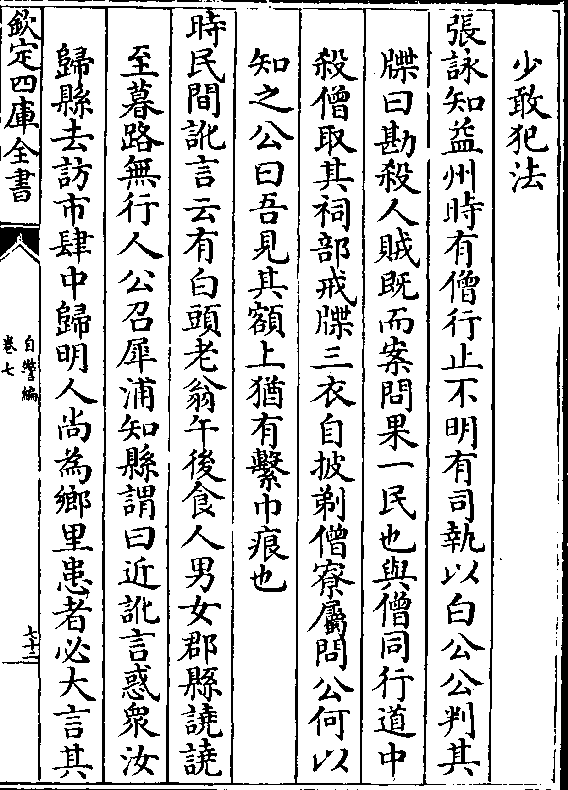 少敢犯法
張詠知益州時有僧行止不明有司執以白公公判其
牒曰勘殺人賊既而案問果一民也與僧同行道中
殺僧取其祠部戒牒三衣自披剃僧寮屬問公何以
知之公曰吾見其額上猶有繫巾痕也
時民間訛言云有白頭老翁午後食人男女郡縣譊譊
至暮路無行人公召犀浦知縣謂曰近訛言惑衆汝
歸縣去訪市肆中歸明人尚為鄉里患者必大言其
欽定四庫全書
自警編
卷七
七十三